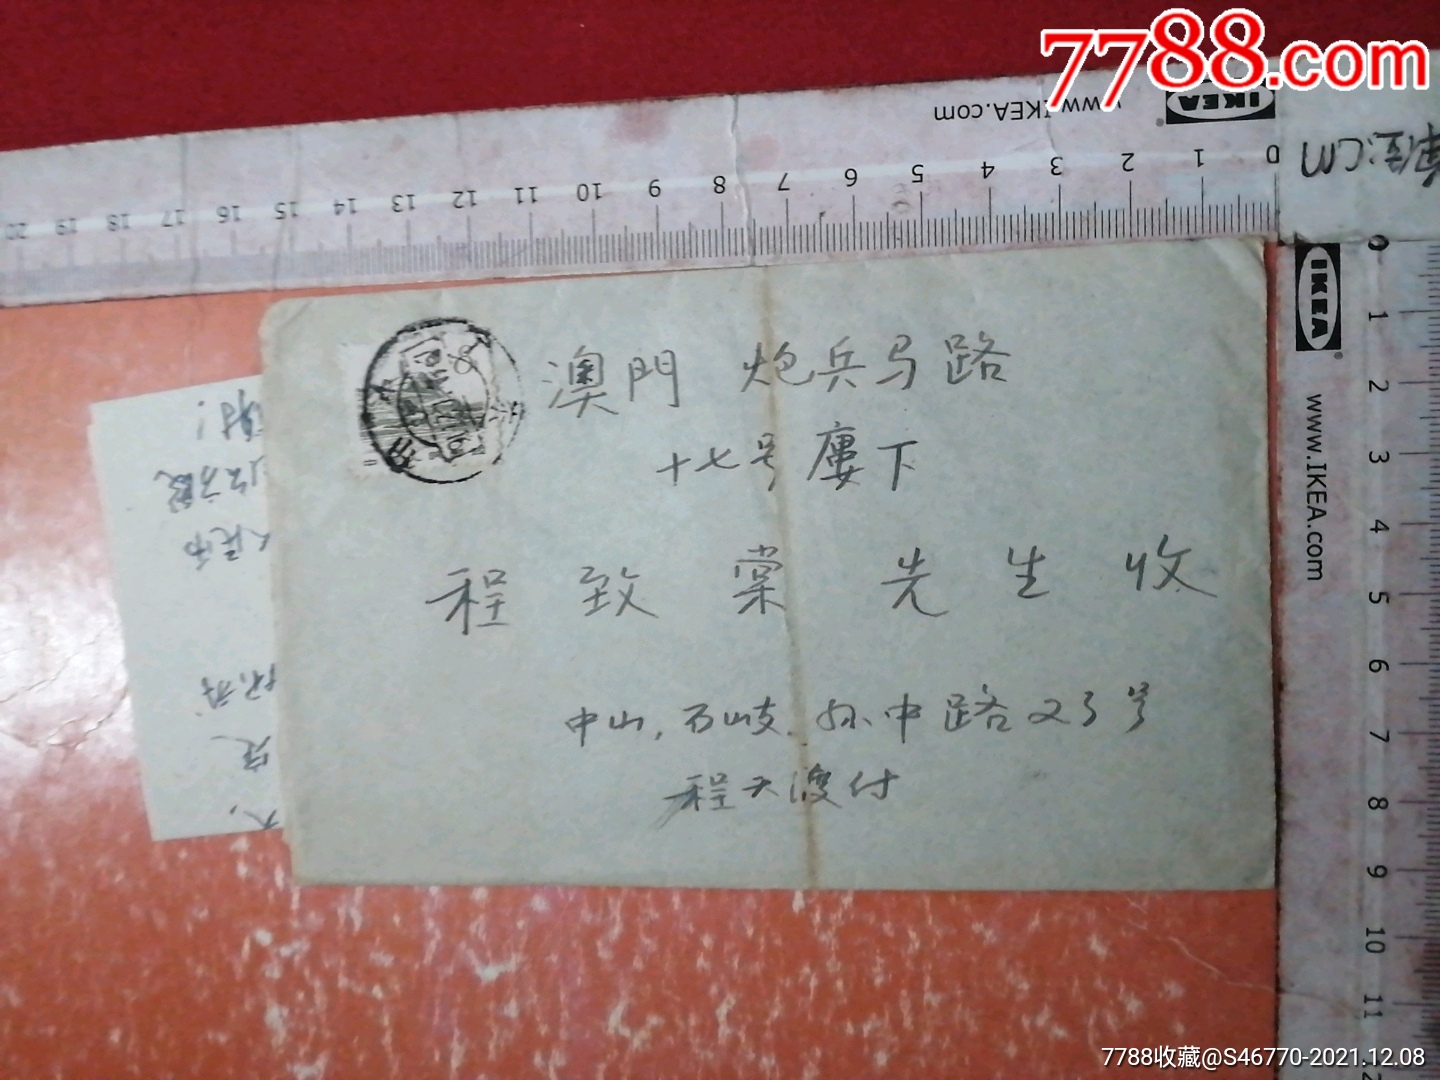 7788.com
www.IKEA.com
IKEA
0 1 2 3 4 5 6 7 8 9 10 11 12 13 14 15 16 17 18 19 20
单位:CM
澳門 炮兵马路
十七号廔下
程致棠先生收
中山,石岐,孙中路23号
程天渡付
谢!
人民币
IKEA
www.IKEA.com
0 1 2 3 4 5 6 7 8 9 10 11
7788收藏@S46770-2021.12.08